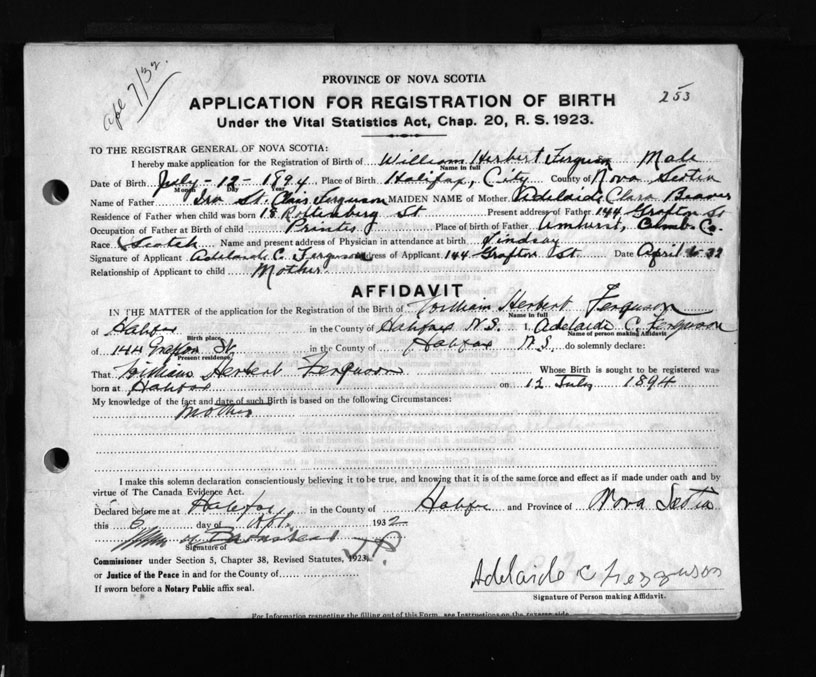 apl 7/32.
253
PROVINCE OF NOVA SCOTIA
APPLICATION FOR REGISTRATION OF BIRTH
Under the Vital Statistics Act, Chap. 20, R. S. 1923.
TO THE REGISTRAR GENERAL OF NOVA SCOTIA:
I hereby make application for the Registration of Birth of William Herbert Ferguson Male
Name in full
Date of Birth July - 12 - 1894 Place of Birth Halifax, City County of Nova Scotia
Month Day Year
Name of Father St. Clair Ferguson MAIDEN NAME of Mother Adelaide Clara
Residence of Father when child was born 15 St Present address of Father 144 Grafton St
Occupation of Father at Birth of child Printer Place of birth of Father Amherst, Cumb. Co.
Race Scotch Name and present address of Physician in attendance at birth Lindsay
Signature of Applicant Adelaide C. Ferguson Address of Applicant 144 Grafton St Date April 6-32
Relationship of Applicant to child Mother
AFFIDAVIT
IN THE MATTER of the application for the Registration of the Birth of William Herbert Ferguson
Name in full
of Halifax in the County of Halifax N.S. I, Adelaide C. Ferguson
Birth place Name of person making Affidavit
of 144 Grafton St. in the County of Halifax N.S. do solemnly declare:
Present residence
That William Herbert Ferguson Whose Birth is sought to be registered was
born at Halifax on 12 July 1894
My knowledge of the fact and date of such Birth is based on the following Circumstances:
Mother
I make this solemn declaration conscientiously believing it to be true, and knowing that it is of the same force and effect as if made under oath and by
virtue of The Canada Evidence Act.
Declared before me at Halifax in the County of Halifax and Province of Nova Scotia
this 6 day of Apl. 1932
J.P.
Signature of
Commissioner under Section 5, Chapter 38, Revised Statutes, 1923,
or Justice of the Peace in and for the County of
If sworn before a Notary Public affix seal.
Adelaide C Ferguson
Signature of Person making Affidavit.
For Information respecting the filling out of this Form, see Instructions on the reverse side.